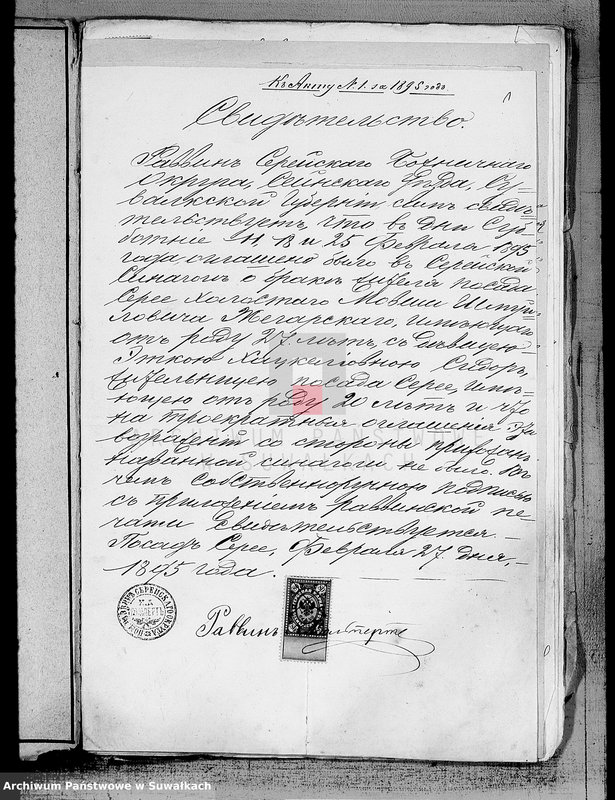 Къ Акту N. 1. за 1895 годъ
Свидѣтельство.
Раввинъ Серейскаго Божничнаго
Округа, Сейнскаго уѣзда, Су-
валкской Губерніи симъ свидѣ-
тельствуетъ, что въ дни Суб-
ботніе 11 18 и 25 Февраля 1895
года оглашено было въ Серейской
Синагогѣ о бракѣ жителя посада
Серее холостаго Мовши
Жегарскаго, имѣющаго
отъ роду 27 лѣтъ, съ дѣвицею
Иткою Хацкелевною Сидоръ,
жительницею посада Серее, имѣ-
ющею отъ роду 20 лѣтъ и что
на троекратныя оглашенія
возраженій со стороны прихожанъ
названной синагоги не было. Въ
чемъ собственноручною подписью
съ приложеніемъ раввинской пе-
чати свидѣтельствуется.
Посадъ Серее, Февраля 27 дня,
1895 года.
Раввинъ
ARCHIWUM PAŃSTWOWE
W SUWAŁKACH
Archiwum Państwowe w Suwałkach